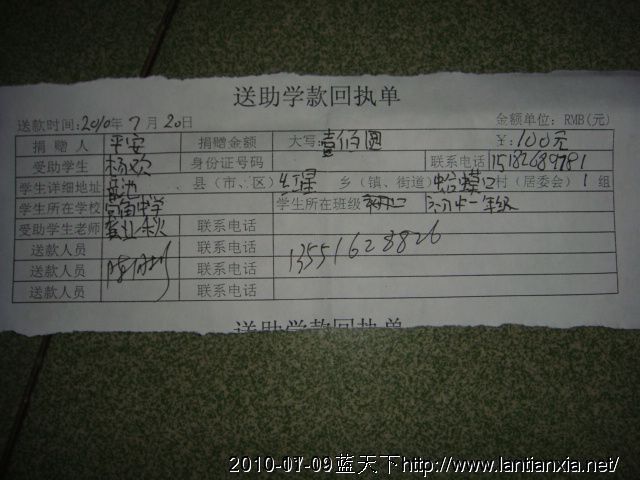 送助学款回执单
送款时间:2010年7月20日 金额单位: RMB(元)
捐赠人 平安 捐赠金额 大写:壹佰圆 ¥:100元
受助学生 杨欢 身份证号码 联系电话 15182689781
学生详细地址 县(市、区) 乡(镇、街道) 蛤蟆口村(居委会) 1组
学生所在学校 中学 学生所在班级 初一年级
受助学生老师 联系电话
送款人员 联系电话 13551628826
送款人员 联系电话
送款人员 联系电话
送助学款回执单
2010-01-09蓝天下http://www.lantianxia.net/